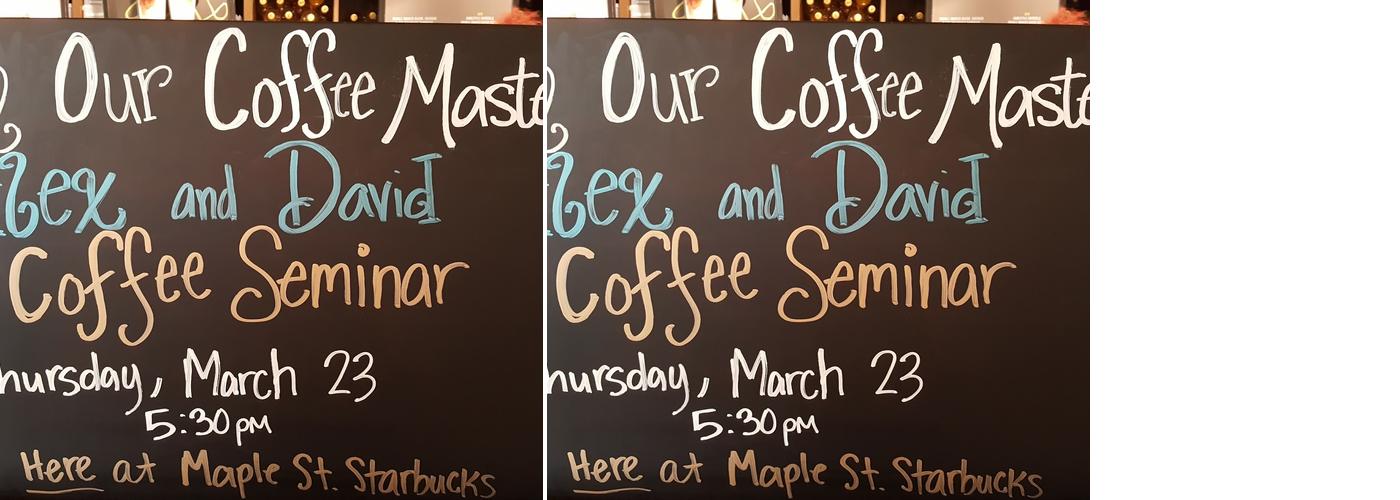 Our Coffee Maste
lex and David
Coffee Seminar
hursday, March 23
5:30 PM
Here at Maple St. Starbucks
Our Coffee Maste
lex and David
Coffee Seminar
hursday, March 23
5:30 PM
Here at Maple St. Starbucks